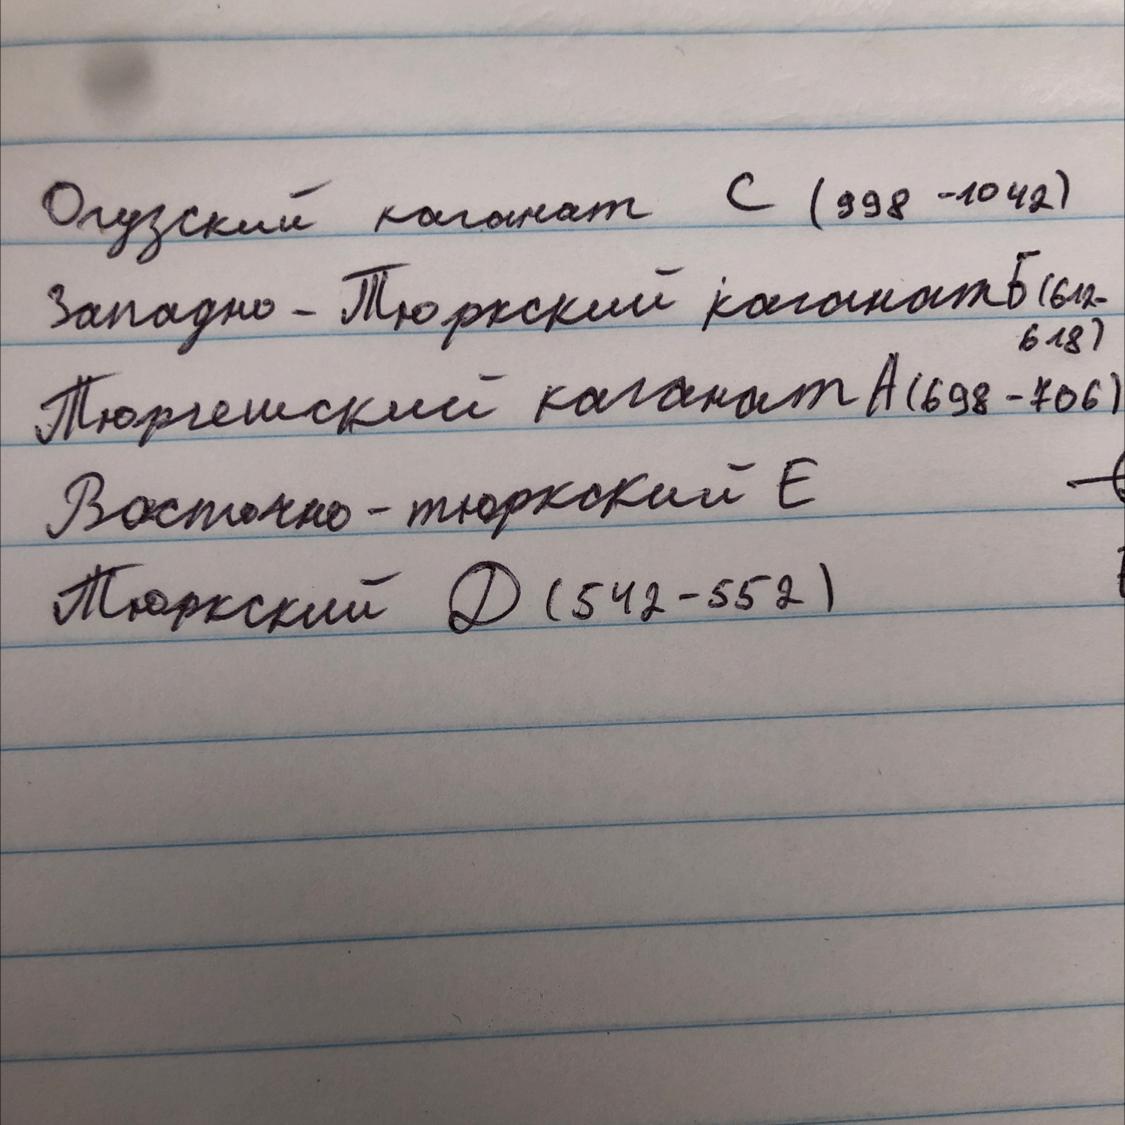 Огузский каганат С (998-1042)
Западно-Тюркский каганат Б (612-
618)
Тюргешский каганат А (698-706)
Восточно-тюркский Е
Тюркский Д (542-552)